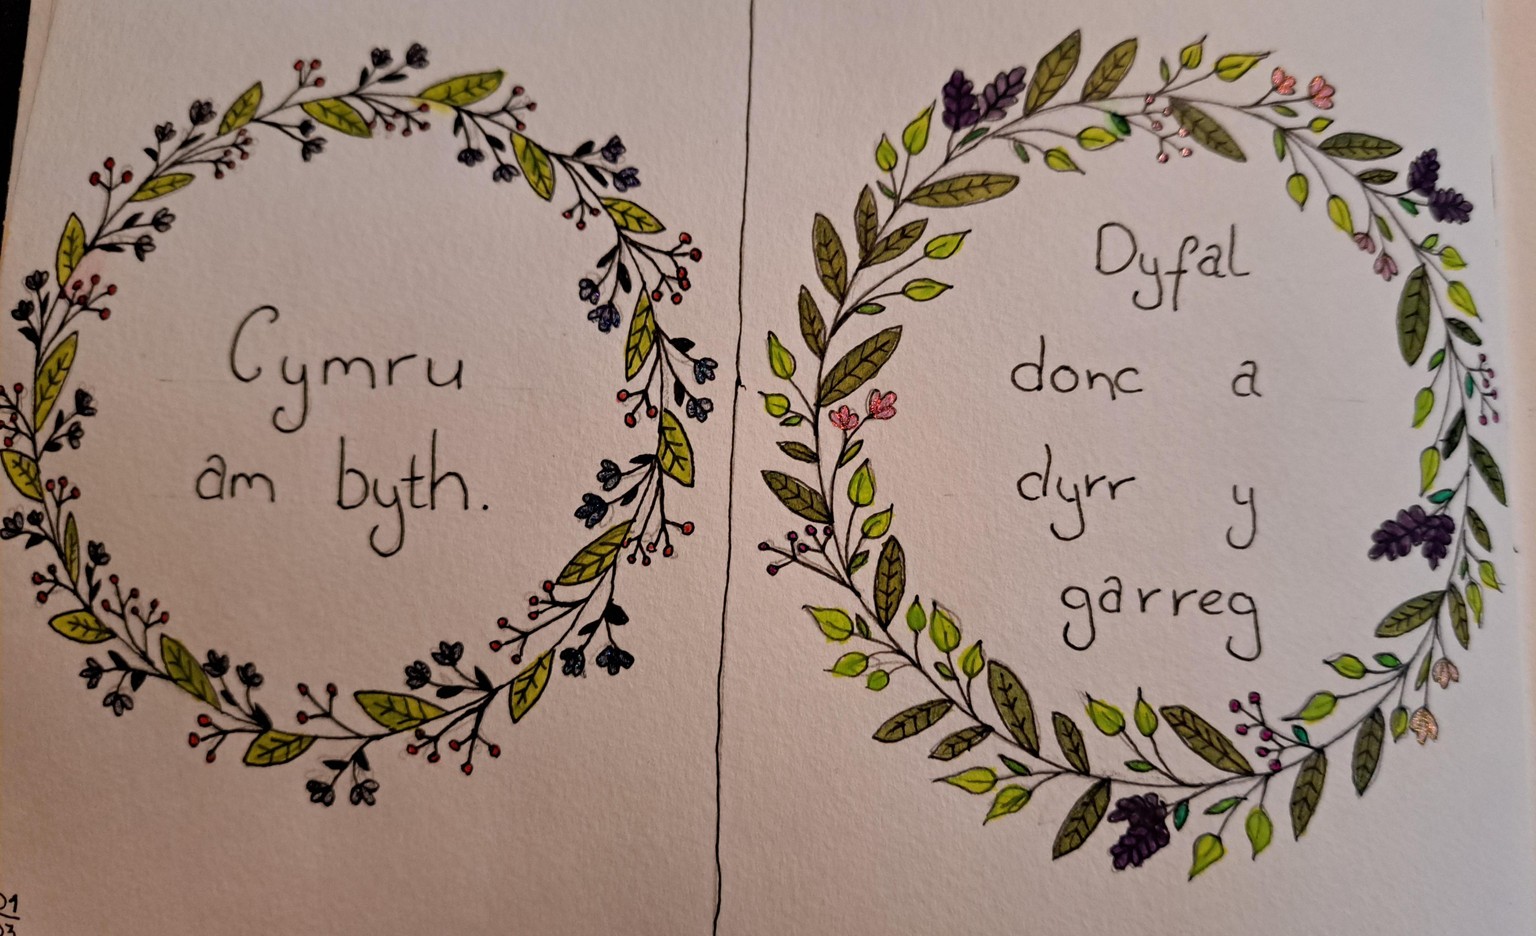 Cymru
am byth.
Dyfal
donc a
dyrr y
garreg
01
03